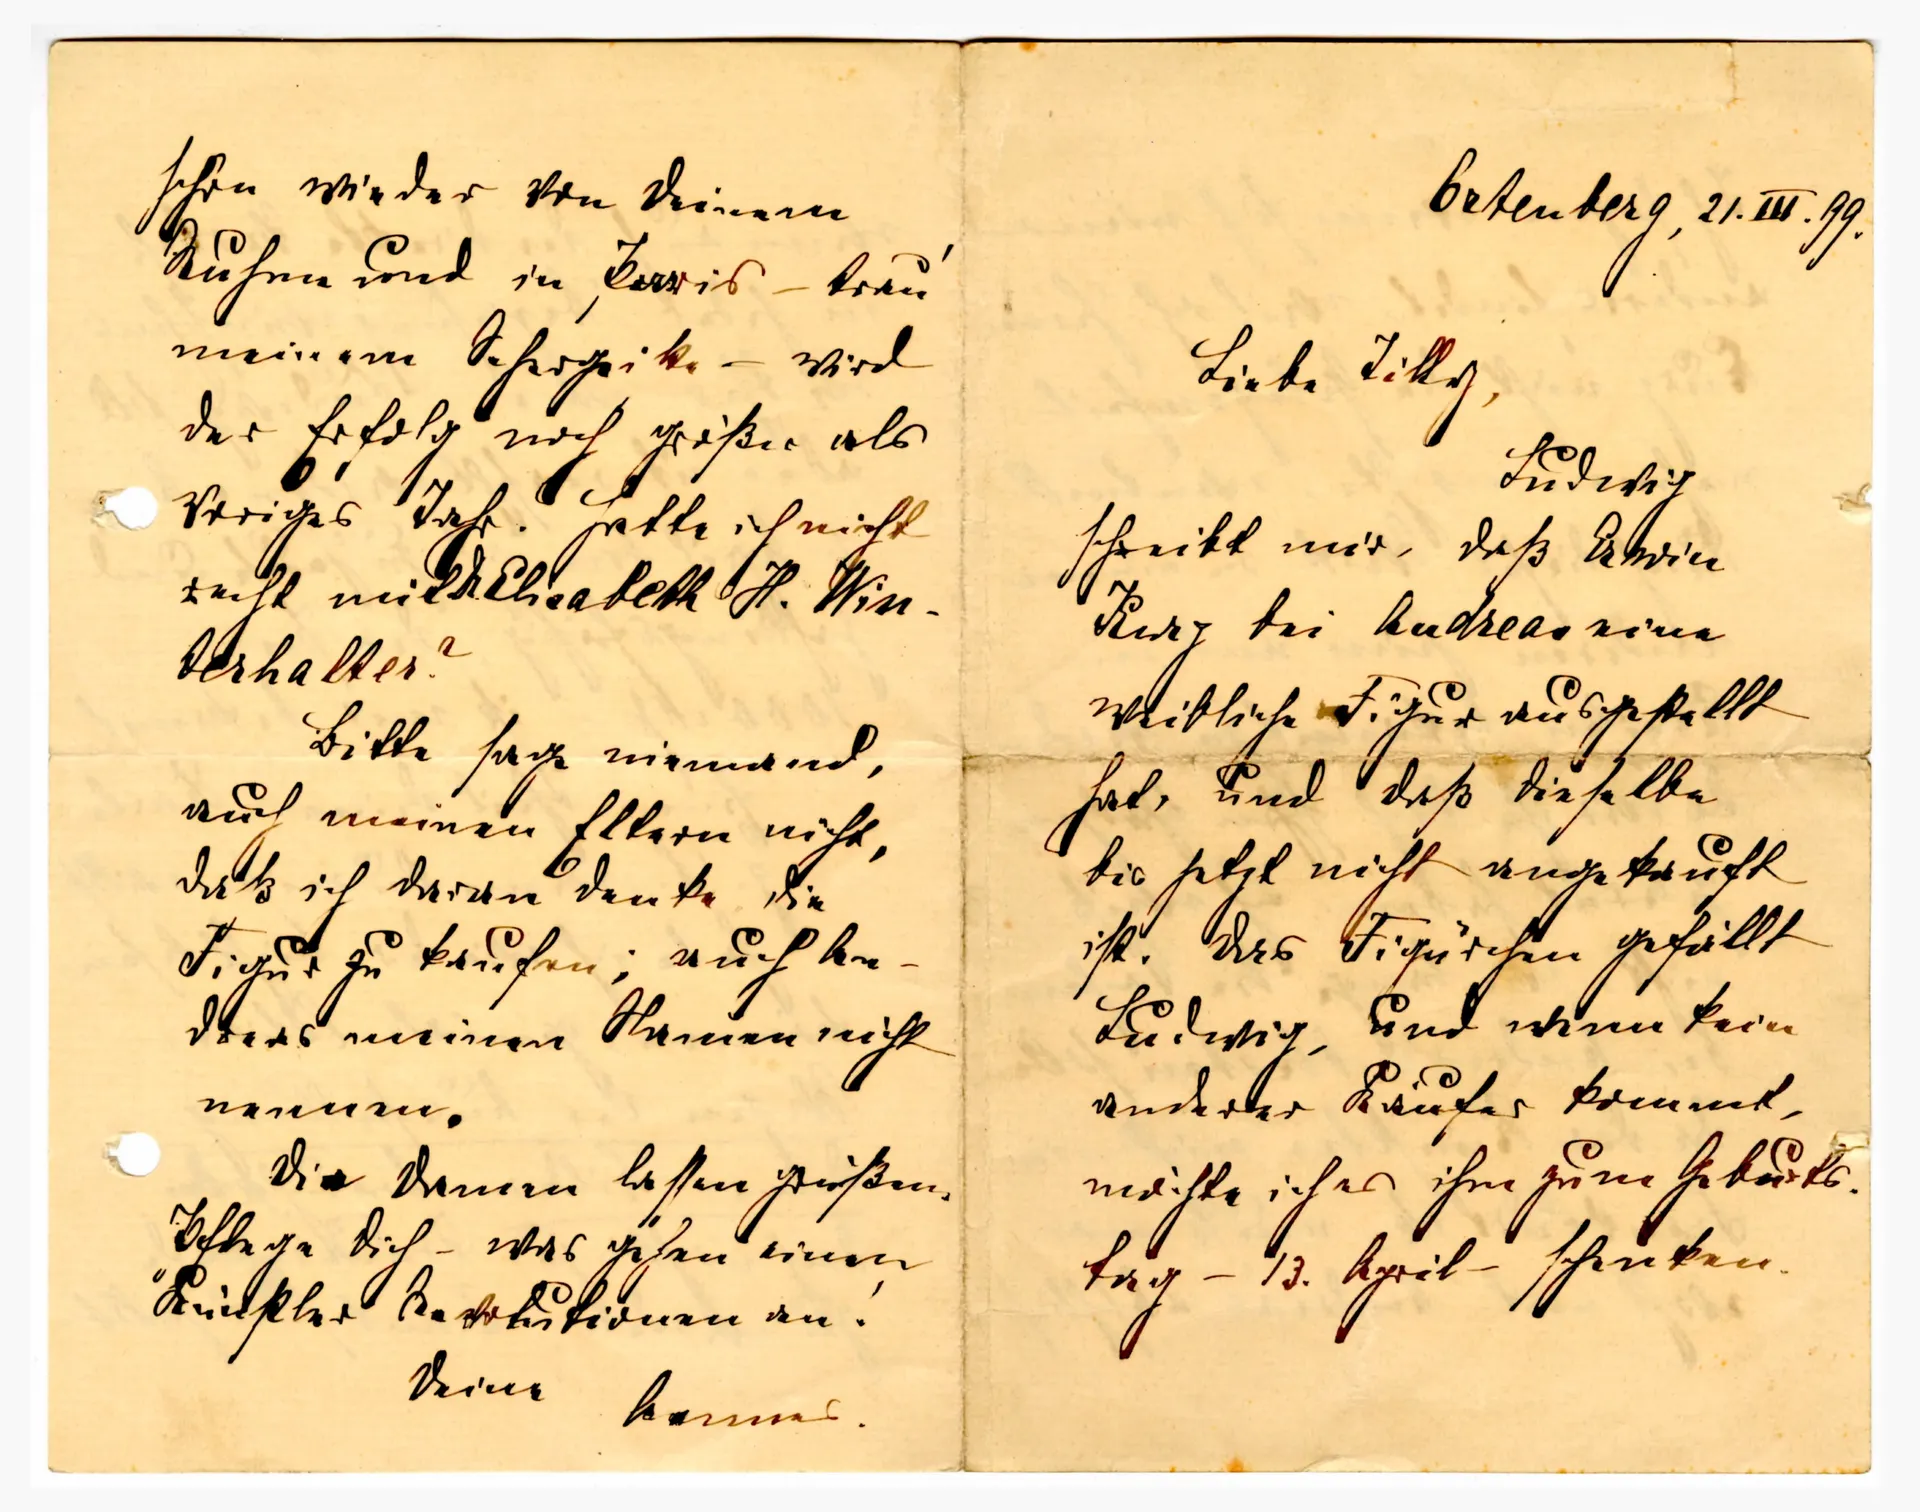 Ortenberg, 21. III. 99.
Liebe Tilly,
Ludwig
schreibt mir, daß Erwin
Kurz bei Andreas eine
weibliche Figur ausgestellt
hat, und daß dieselbe
bis jetzt nicht angekauft
ist. Das Figürchen gefällt
Ludwig, und wenn kein
anderer Käufer kommt,
möchte ich es ihm zum Geburts-
tag – 13. April – schenken.
schon wieder von Deinem
Ruhm und in Paris – trau'
meinem – wird
der Erfolg noch größer als
voriges Jahr. Hatte ich nicht
recht mit Elisabeth H. Win-
terhalter?
Bitte sage niemand,
auch meinen Eltern nicht,
daß ich daran denke die
Figur zu kaufen; auch An-
dreas meinen Namen nicht
nennen.
Die Damen lassen grüßen.
Pflege Dich – was gehen einen
Künstler Revolutionen an!
Deine